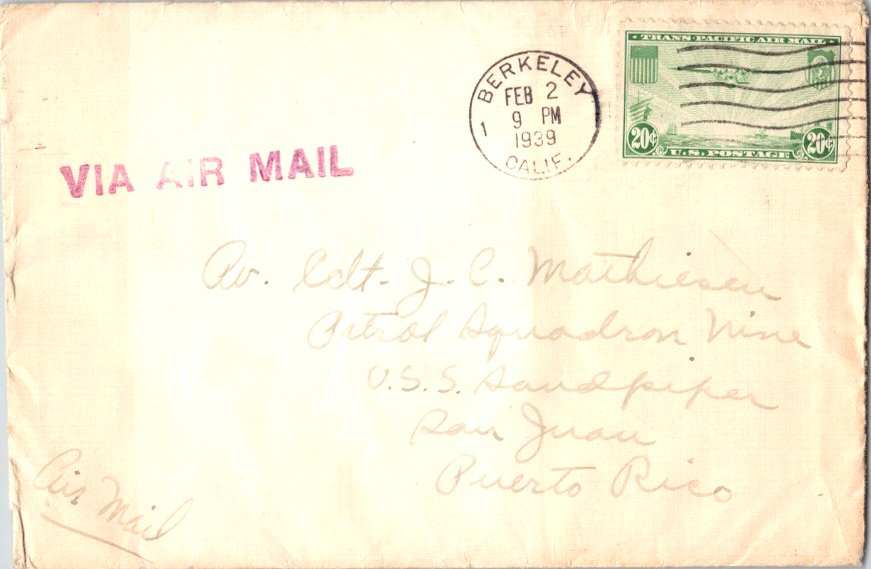 · TRANS-PACIFIC AIR MAIL ·
20¢ U.S. POSTAGE 20¢
BERKELEY
FEB 2
9 PM
1 1939
CALIF.
VIA AIR MAIL
Av. Cdt. J. C. Mathiesen
Patrol Squadron Nine
U.S.S. Sandpiper
San Juan
Puerto Rico
Air Mail